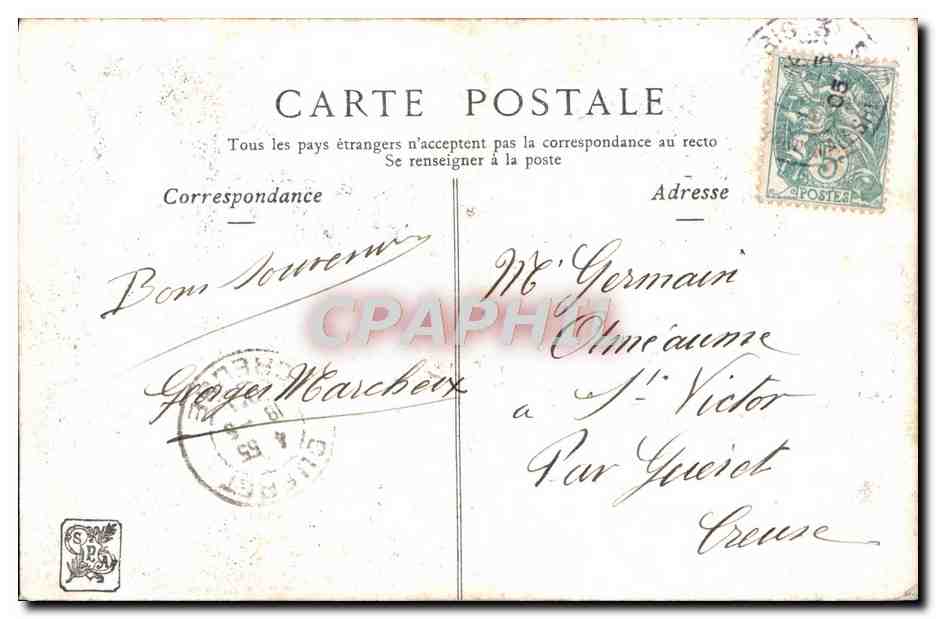 CARTE POSTALE
Tous les pays étrangers n'acceptent pas la correspondance au recto
Se renseigner à la poste
Correspondance
Adresse
5c
POSTES
05
Bon Souvenir
Georges Marcheix
Mr Germain
à St Victor
Par Guéret
Creuse
CPAPHIL
GUERET
4 55
SPA